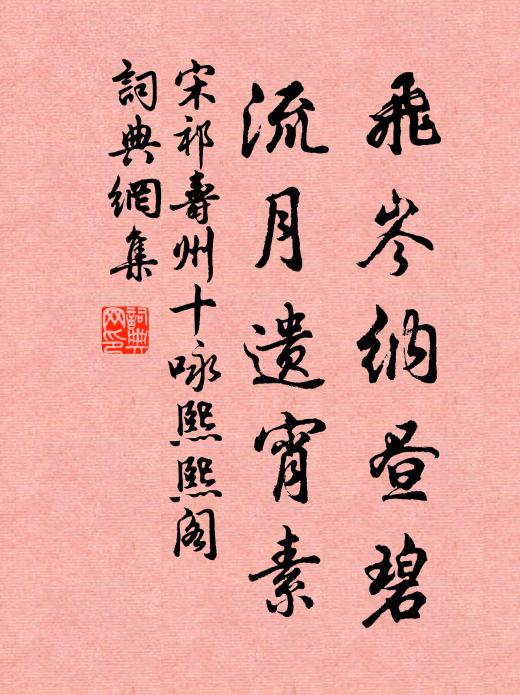 飛岑納昼碧
流月遺宵素
宋祁壽州十咏熙熙阁
詞典網集
詞典网印